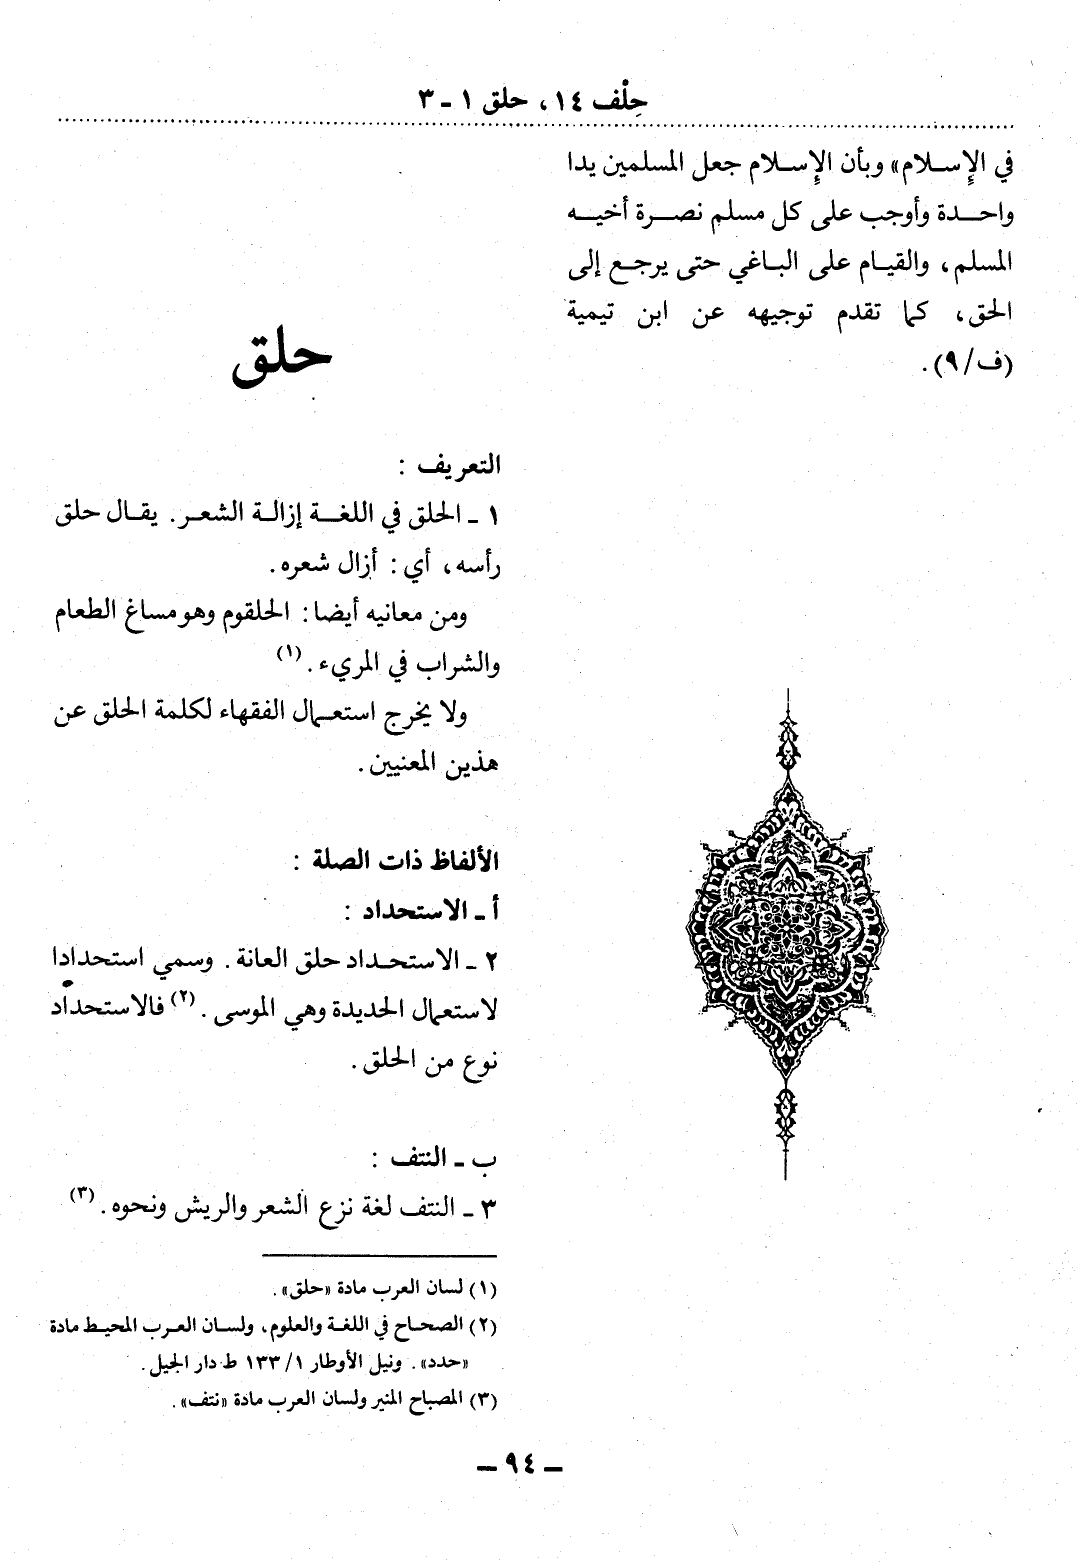 حِلْف ١٤، حلق ١ - ٣
في الإسلام» وبأن الإسلام جعل المسلمين يدا
واحدة وأوجب على كل مسلم نصرة أخيه
المسلم، والقيام على الباغي حتى يرجع إلى
الحق، كما تقدم توجيهه عن ابن تيمية
(ف/٩).
حلق
التعريف :
١ - الحلق في اللغة إزالة الشعر. يقال حلق
رأسه، أي: أزال شعره.
ومن معانيه أيضا: الحلقوم وهو مساغ الطعام
والشراب في المريء. (١)
ولا يخرج استعمال الفقهاء لكلمة الحلق عن
هذين المعنيين.
الألفاظ ذات الصلة :
أ - الاستحداد :
٢ - الاستحداد حلق العانة. وسمي استحدادا
لاستعمال الحديدة وهي الموسى. (٢) فالاستحداد
نوع من الحلق.
ب - النتف :
٣ - النتف لغة نزع الشعر والريش ونحوه. (٣)
(١) لسان العرب مادة «حلق».
(٢) الصحاح في اللغة والعلوم، ولسان العرب المحيط مادة
«حدد». ونيل الأوطار ١/ ١٣٣ ط دار الجيل.
(٣) المصباح المنير ولسان العرب مادة «نتف».
- ٩٤ -